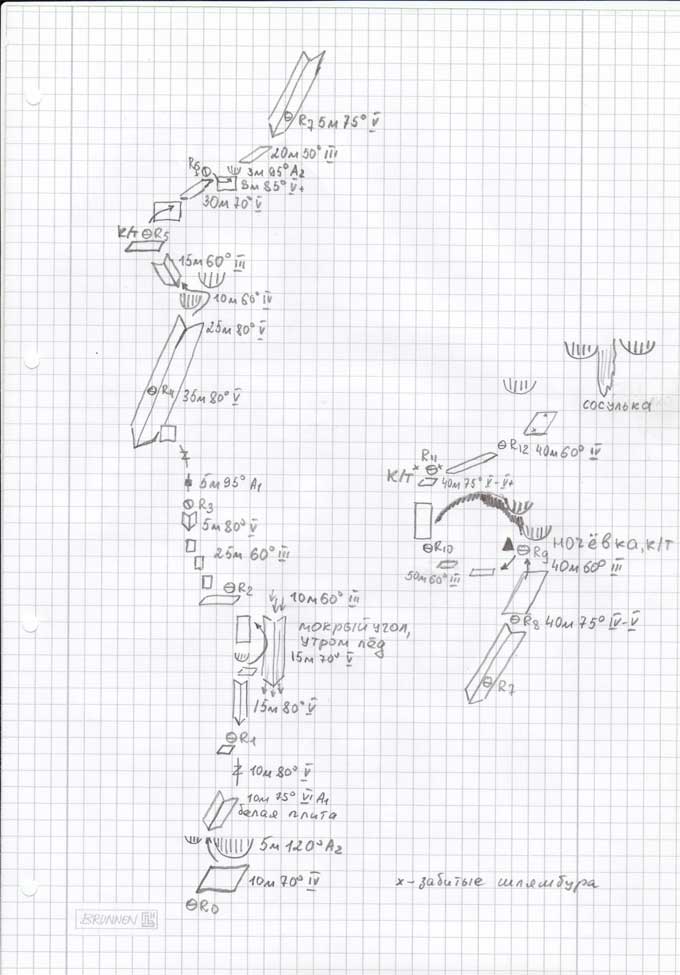 R7 5м 75° V
20м 50° III
R6
3м 95° A2
8м 85° V+
30м 70° V
К/Т R5
15м 60° III
10м 60° IV
25м 80° V
R4 35м 80° V
5м 95° A1
R3
5м 80° V
25м 60° III
R2
10м 60° III
мокрый угол,
утром лёд
15м 70° V
15м 80° V
R1
10м 80° V
10м 75° VI A1
белая плита
5м 120° A2
10м 70° IV
R0
BRUNNEN
сосулька
R12 40м 60° IV
R11
К/Т
40м 75° V-V+
R10
R9 НОЧЁВКА, К/Т
40м 60° III
50м 60° III
R8 40м 75° IV-V
R7
x-забитые шлямбура